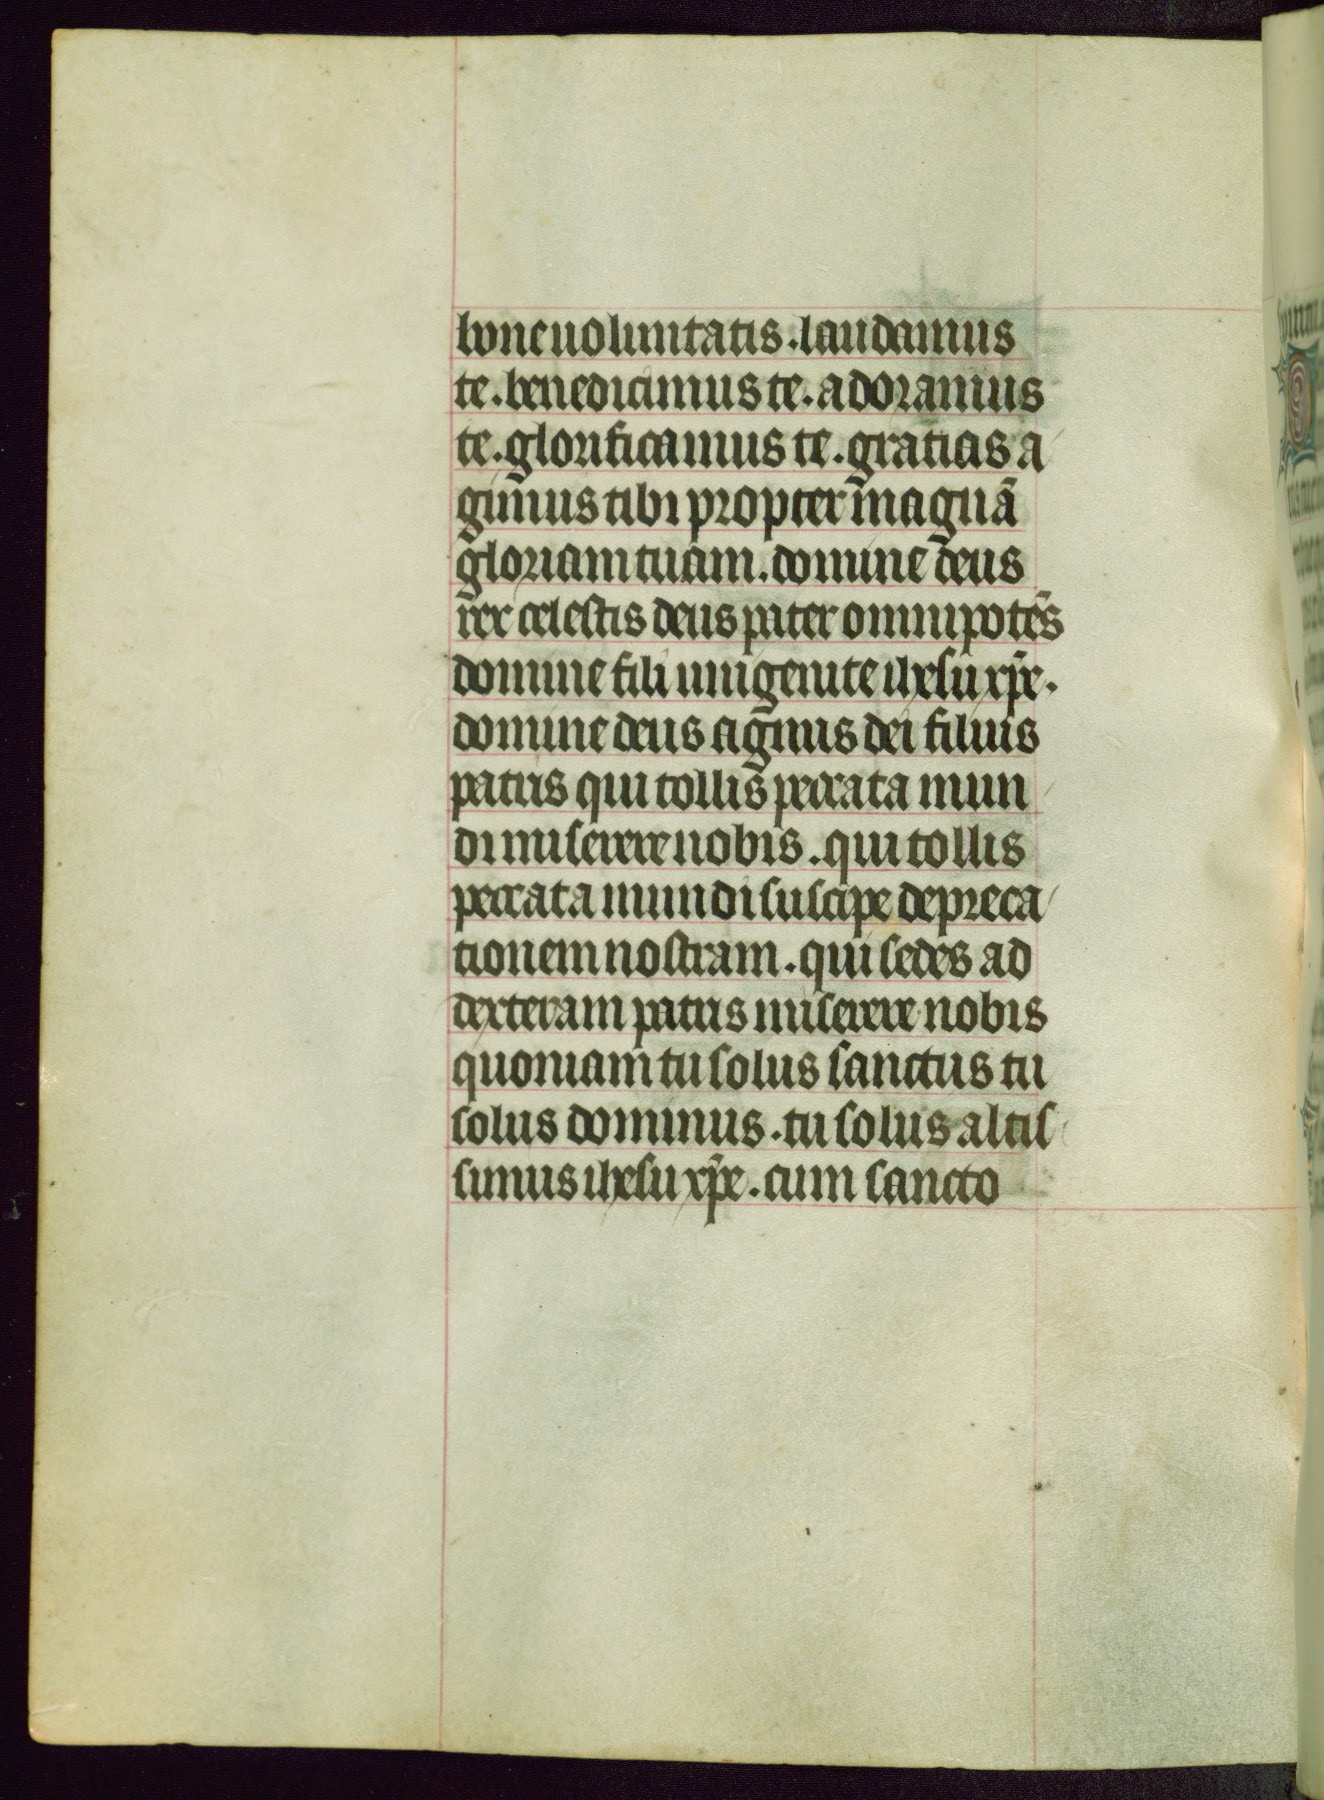 bone uoluntatis. laudamus
te. benedicimus te. adoramus
te. glorificamus te. gratias a
gimus tibi propter magnā
gloriam tuam. domine deus
rex celestis deus pater omnipotēs
domine fili unigenite ihesu xp̄e.
domine deus agnus dei filius
patris qui tollis peccata mun
di miserere nobis. qui tollis
peccata mundi suscipe depreca
tionem nostram. qui sedes ad
dexteram patris miserere nobis
quoniam tu solus sanctus tu
solus dominus. tu solus altis
simus ihesu xp̄e. cum sancto